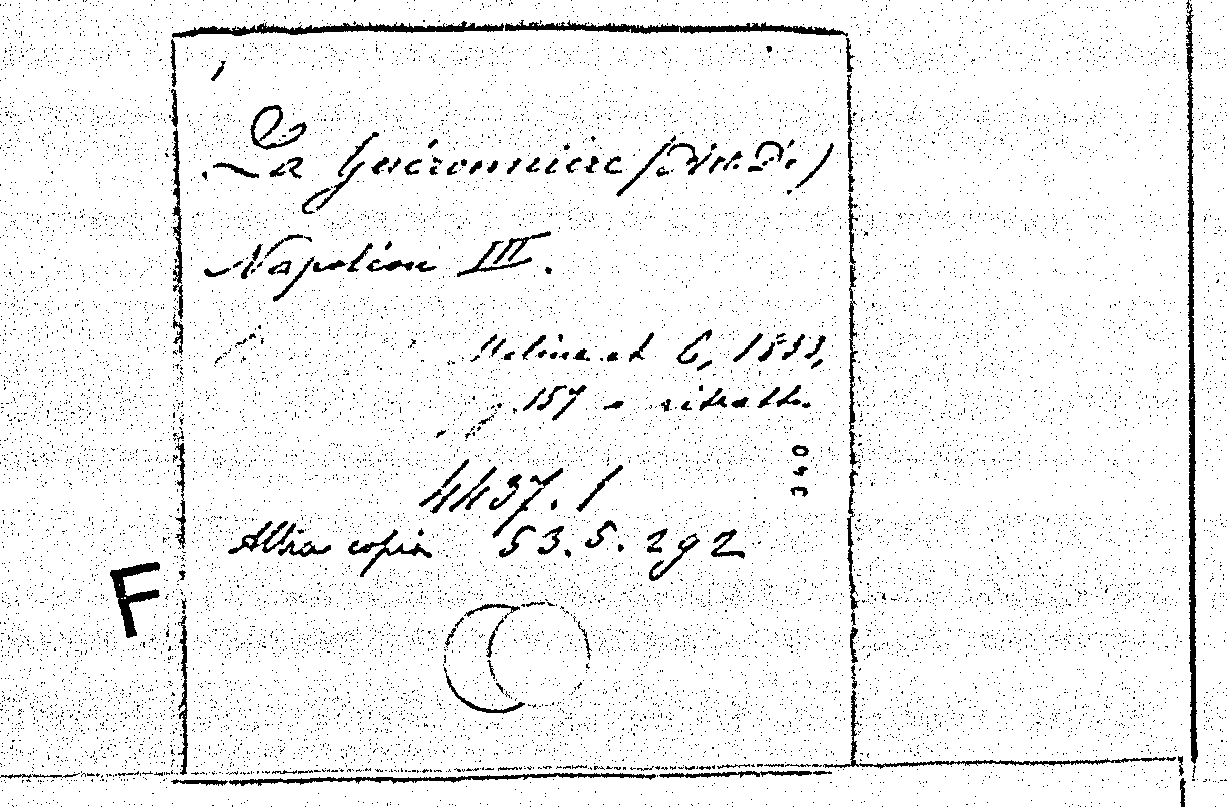 La Guéronnière (Art. De)
Napoléon III.
Meline et C, 1853,
157 e ritratto
340
4437.1
Altra copia 53.5.292
F